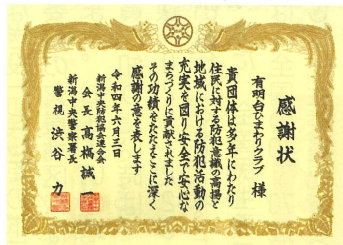 感謝状
有明台ひまわりクラブ 様
貴団体は多年にわたり
住民に対する防犯意識の高揚と
地域における防犯活動の
充実を図り安全で安心な
まちづくりに貢献されました
その功績をたたえここに深く
感謝の意を表します
令和四年六月三日
新潟中央防犯協会連合会
会長 高橋誠一
新潟中央警察署長
警視 渋谷 力